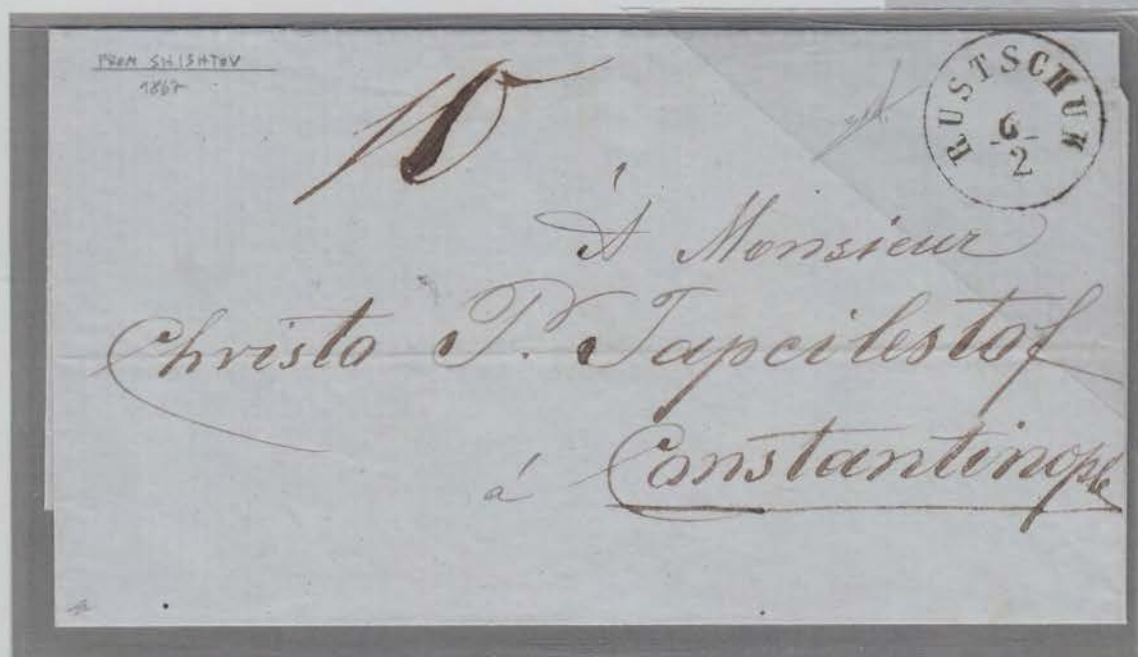 FROM SHISHTOV
1867
10
RUSTSCHUK
6
2
À Monsieur
Christo P. Tapcilestof
á Constantinople